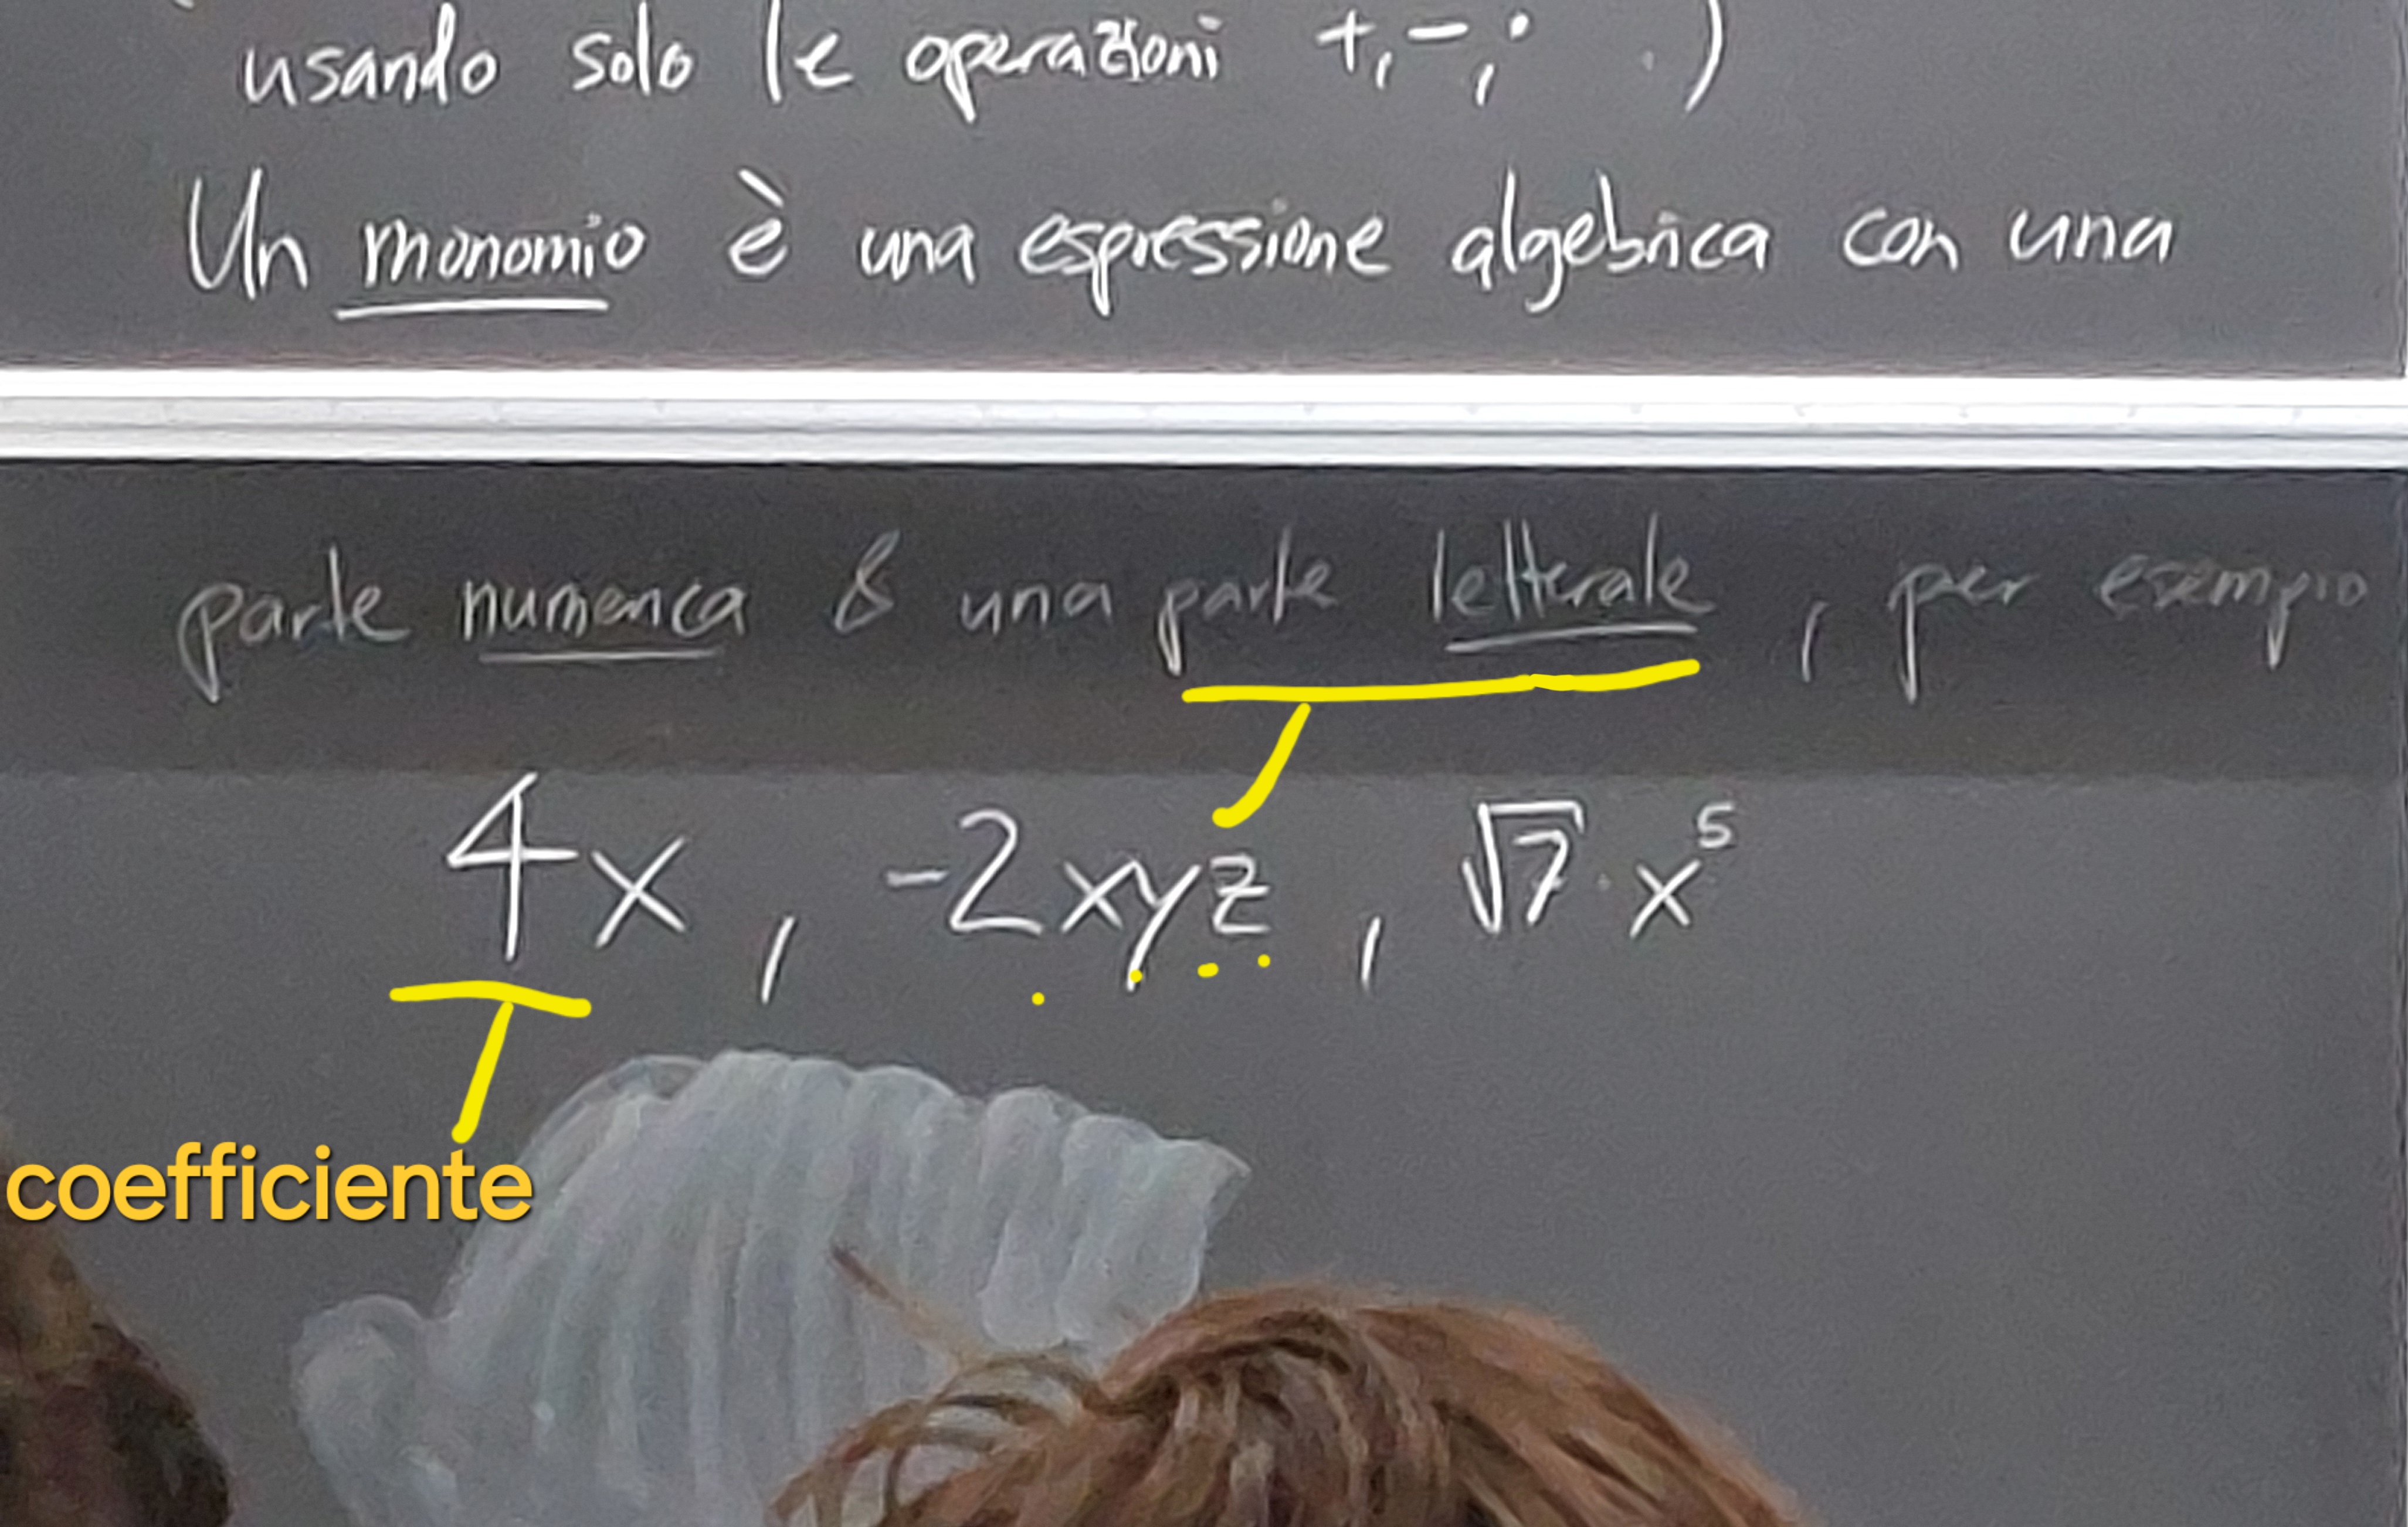 usando solo le operazioni +, -, · .)
Un monomio è una espressione algebrica con una
parte numerica & una parte letterale, per esempio
4x, -2xyz, √7 · x⁵
coefficiente